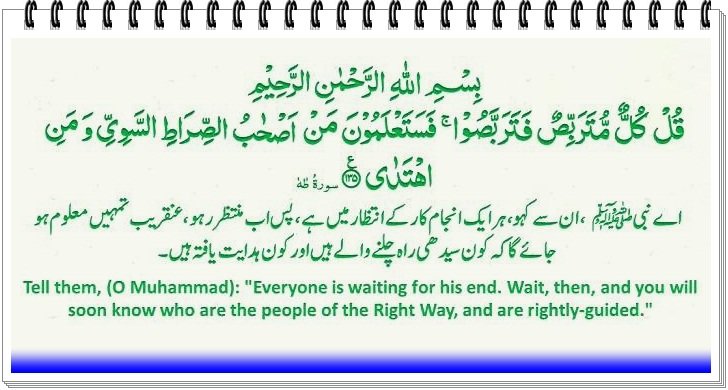 بِسْمِ اللهِ الرَّحْمٰنِ الرَّحِيْمِ
قُلْ كُلٌّ مُّتَرَبِّصٌ فَتَرَبَّصُوْا ۚ فَسَتَعْلَمُوْنَ مَنْ اَصْحٰبُ الصِّرَاطِ السَّوِيِّ وَ مَنِ
اهْتَدٰى ۝۱۳۵ ع سورة طٰهٰ
اے نبی ﷺ ، ان سے کہو، ہر ایک انجام کار کے انتظار میں ہے، پس اب منتظر رہو، عنقریب تمہیں معلوم ہو
جائے گا کہ کون سیدھی راہ چلنے والے ہیں اور کون ہدایت یافتہ ہیں۔
Tell them, (O Muhammad): "Everyone is waiting for his end. Wait, then, and you will
soon know who are the people of the Right Way, and are rightly-guided."